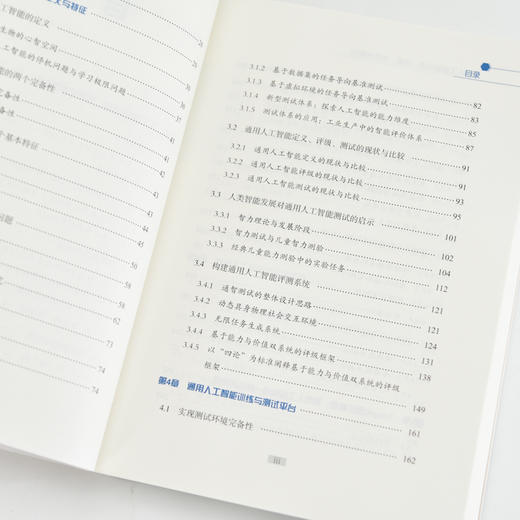 义与特征
工智能的定义
生物的心智空间
人工智能的停机问题与学习极限问题
能的两个完备性
完备性
备性
个基本特征
问题
26
26
31
36
37
41
41
41
43
44
45
50
50
54
58
58
62
67
74
74
目录
3.1.2 基于数据集的任务导向基准测试 82
3.1.3 基于虚拟环境的任务导向基准测试 83
3.1.4 新型测试体系：探索人工智能的能力维度 85
3.1.5 测试体系的应用：工业生产中的智能评价体系 87
3.2 通用人工智能定义、评级、测试的现状与比较 91
3.2.1 通用人工智能定义的现状与比较 91
3.2.2 通用人工智能评级的现状与比较 93
3.2.3 通用人工智能测试的现状与比较 95
3.3 人类智能发展对通用人工智能测试的启示 101
3.3.1 智力理论与发展阶段 102
3.3.2 智力测试与儿童智力测验 104
3.3.3 经典儿童能力测验中的实验任务 112
3.4 构建通用人工智能评测系统 121
3.4.1 通智测试的整体设计思路 121
3.4.2 动态具身物理社会交互环境 124
3.4.3 无限任务生成系统 131
3.4.4 基于能力与价值双系统的评级框架 138
3.4.5 以“四论”为标准阐释基于能力与价值双系统的评级
框架 149
第4章 通用人工智能训练与测试平台 161
4.1 实现测试环境完备性 162
III